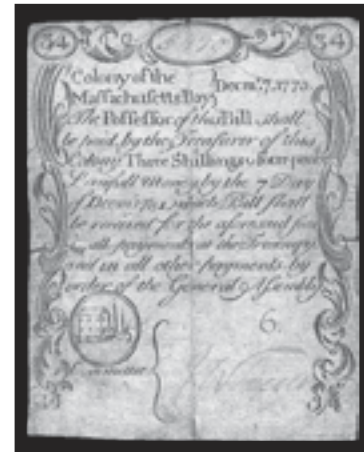 34 34
Colony of the
Massachusetts Bay
Decmr. 7, 1775
The Possessor of this Bill shall
be paid, by the Treasurer of this
Colony Three Shillings & four pence
Lawfull Money by the 7 Day
of Decemr. which Bill shall
be received for the aforesaid
in all payments at the Treasury
and in all other payments by
order of the General Assembly
6.